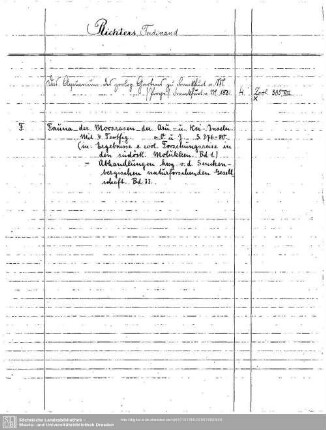 Richters, Ferdinand
Das Aquarium des zoolog. Gartens zu Frankfurt a. M.
Frankfurt a. M. 188 4. Zool.
F Fauna der Moosrasen der Aru- u. Kei-Inseln
Mit 3 Textfig. O. O. u. J. S.
(in: Ergebnisse e. zool. Forschungsreise in
den südöstl. Molukken. Bd 2.)
= Abhandlungen hrg. v. d. Sencken-
bergischen naturforschenden Gesell-
schaft. Bd 33.
Sächsische Landesbibliothek -
Staats- und Universitätsbibliothek Dresden